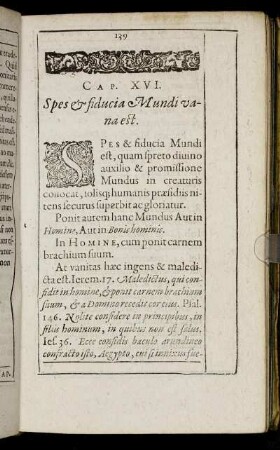 139
CAP. XVI.
Spes & fiducia Mundi va-
na est.
SPES & fiducia Mundi
est, quam spreto divino
auxilio & promissione
Mundus in creaturis
collocat, solisq; humanis præsidiis ni-
tens securus superbit ac gloriatur.
Ponit autem hanc Mundus Aut in
Homine, Aut in Bonis hominis.
In HOMINE, cum ponit carnem
brachium suum.
At vanitas hæc ingens & maledi-
cta est. Ierem. 17. Maledictus, qui con-
fidit in homine, & ponit carnem brachium
suum, & a Domino recedit cor eius. Psal.
146. Nolite considere in principibus, in
filiis hominum, in quibus non est salus.
Ies. 36. Ecce confidis baculo arundineo
confracto isto, Aegypto, cui si innixus fue-